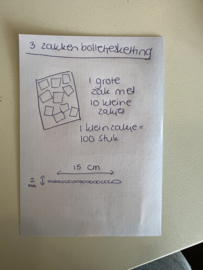 3 zakken bolletjesketting
1 grote
zak met
10 kleine
zakjes
1 klein zakje =
100 stuk
15 cm